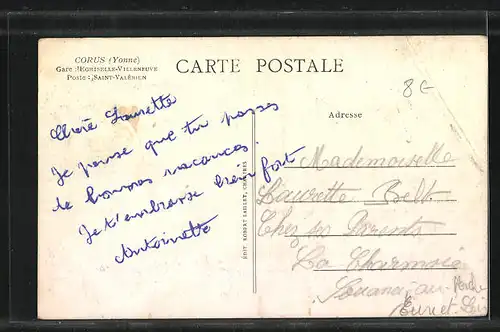 CORUS (Yonne)
Gare : EGRISELLE-VILLENEUVE
Poste : SAINT-VALÉRIEN
CARTE POSTALE
8€
Adresse
Chère Laurette
Je pense que tu passes
de bonnes vacances.
Je t'embrasse bien fort
Antoinette
EDIT. ROBERT LAILLET, CHARTRES
Mademoiselle
Laurette Belt
Chez ses Parents
La
au Perche
Eure et Loir